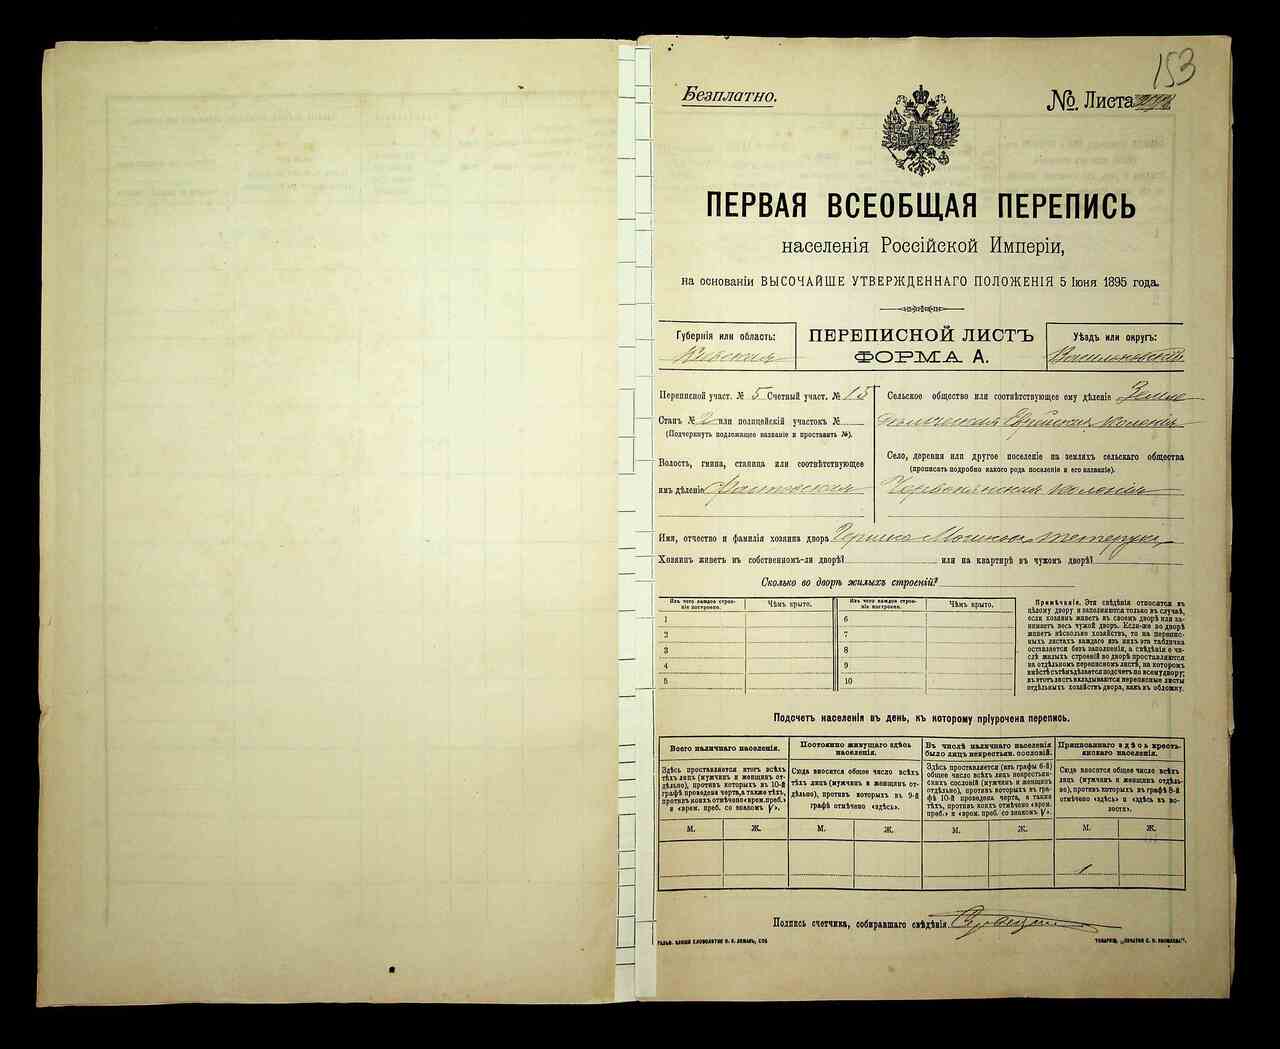 153
Безплатно.
№. Листа
ПЕРВАЯ ВСЕОБЩАЯ ПЕРЕПИСЬ
населенія Россійской Имперіи,
на основаніи ВЫСОЧАЙШЕ УТВЕРЖДЕННАГО ПОЛОЖЕНІЯ 5 Іюня 1895 года.
Губернія или область:
Кіевская
ПЕРЕПИСНОЙ ЛИСТЪ
ФОРМА А.
Уѣздъ или округъ:
Васильковскій
Переписной участ. № 5 Счетный участ. № 15
Станъ № 2 или полицейскій участокъ №
(Подчеркнуть подлежащее названіе и проставить №).
Волость, гмина, станица или соотвѣтствующее
имъ дѣленіе
Сельское общество или соотвѣтствующее ему дѣленіе Земле
дѣльческая Еврейская колонія
Село, деревня или другое поселеніе на земляхъ сельскаго общества
(прописать подробно какого рода поселеніе и его названіе).
Червонянская колонія
Имя, отчество и фамилія хозяина двора Гершко Мошковъ Тетерукъ
Хозяинъ живетъ въ собственномъ-ли дворѣ? или на квартирѣ въ чужомъ дворѣ?
Сколько во дворѣ жилыхъ строеній?
Изъ чего каждое строе-
ніе построено.
Чѣмъ крыто.
Изъ чего каждое строе-
ніе построено.
Чѣмъ крыто.
1 6
2 7
3 8
4 9
5 10
Примѣчаніе. Эти свѣдѣнія относятся къ
цѣлому двору и заполняются только въ случаѣ,
если хозяинъ живетъ въ своемъ дворѣ или за-
нимаетъ весь чужой дворъ. Если-же во дворѣ
живетъ нѣсколько хозяйствъ, то на перепис-
ныхъ листахъ каждаго изъ нихъ эта табличка
оставляется безъ заполненія, а свѣдѣнія о чи-
слѣ жилыхъ строеній во дворѣ проставляются
на отдѣльномъ переписномъ листѣ, на которомъ
вмѣстѣ съ тѣмъ дѣлается подсчетъ по всему двору;
въ этотъ листъ вкладываются переписные листы
отдѣльныхъ хозяйствъ двора, какъ въ обложку.
Подсчетъ населенія въ день, къ которому пріурочена перепись.
Всего наличнаго населенія.
Постоянно живущаго здѣсь
населенія.
Въ числѣ наличнаго населенія
было лицъ некрестьян. сословій.
Приписаннаго здѣсь кресть-
янскаго населенія.
Здѣсь проставляется итогъ всѣхъ
тѣхъ лицъ (мужчинъ и женщинъ от-
дѣльно), противъ которыхъ въ 10-й
графѣ проведена черта, а также тѣхъ,
противъ коихъ отмѣчено «врем. преб.»
и «врем. преб. со знакомъ V».
Сюда вносится общее число всѣхъ
тѣхъ лицъ (мужчинъ и женщинъ от-
дѣльно), противъ которыхъ въ 9-й
графѣ отмѣчено «здѣсь».
Здѣсь проставляется (изъ графы 6-й)
общее число всѣхъ лицъ некрестьян-
скихъ сословій (мужчинъ и женщинъ
отдѣльно), противъ которыхъ въ гра-
фѣ 10-й проведена черта, а также
тѣхъ, противъ коихъ отмѣчено «врем.
преб.» и «врем. преб. со знакомъ V».
Сюда вносится общее число всѣхъ
лицъ (мужчинъ и женщинъ отдѣль-
но), противъ которыхъ въ графѣ 8-й
отмѣчено «здѣсь» и «здѣсь въ во-
лости».
М. Ж. М. Ж. М. Ж. М. Ж.
1
Подпись счетчика, собиравшаго свѣдѣнія.